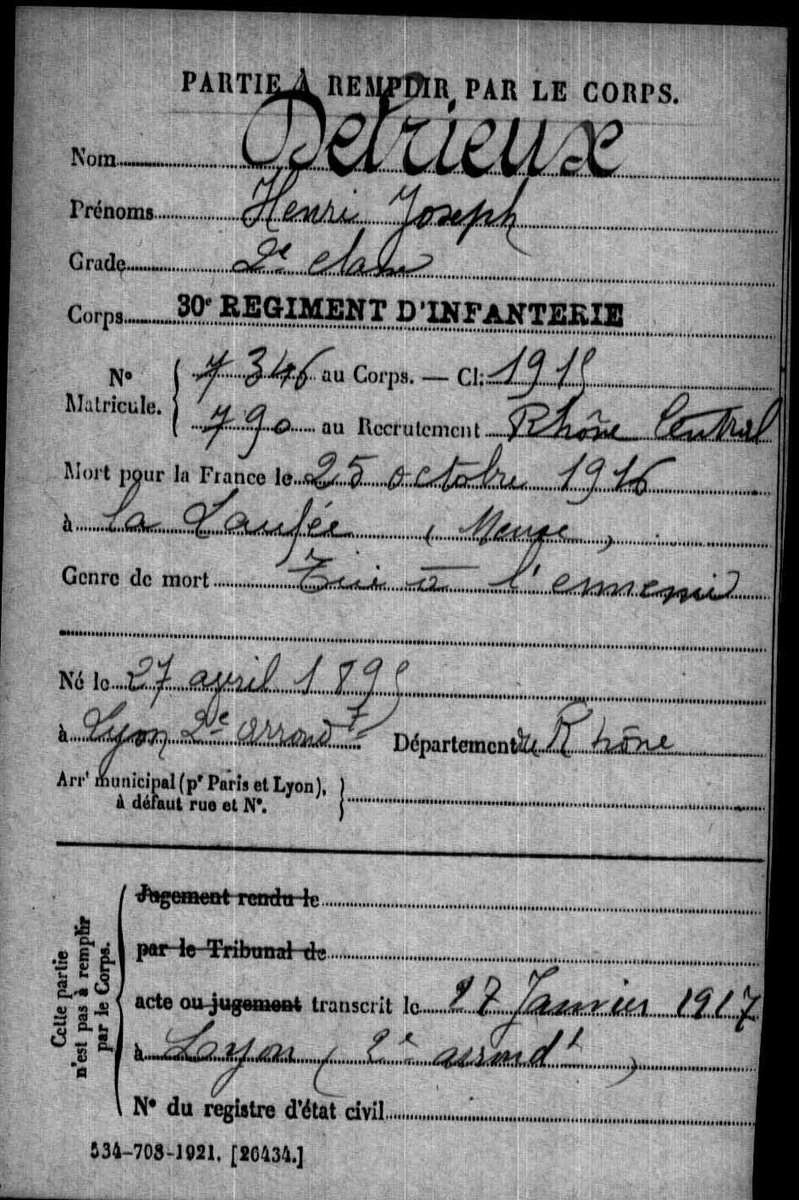 PARTIE À REMPLIR PAR LE CORPS.
Nom Detrieux
Prénoms Henri Joseph
Grade 2e classe
Corps 30e REGIMENT D'INFANTERIE
No Matricule. { 7346 au Corps. — Cl: 1915
790 au Recrutement Rhône Central
Mort pour la France le 25 octobre 1916
à la Laufée (Meuse)
Genre de mort Tué à l'ennemi
Né le 27 avril 1895
à Lyon 2e arrondt Département du Rhône
Arrt municipal (pr Paris et Lyon), }
à défaut rue et No.
Cette partie n'est pas à remplir par le Corps.
Jugement rendu le
par le Tribunal de
acte ou jugement transcrit le 27 Janvier 1917
à Lyon (2e arrondt)
No du registre d'état civil
534-708-1921. [26434.]